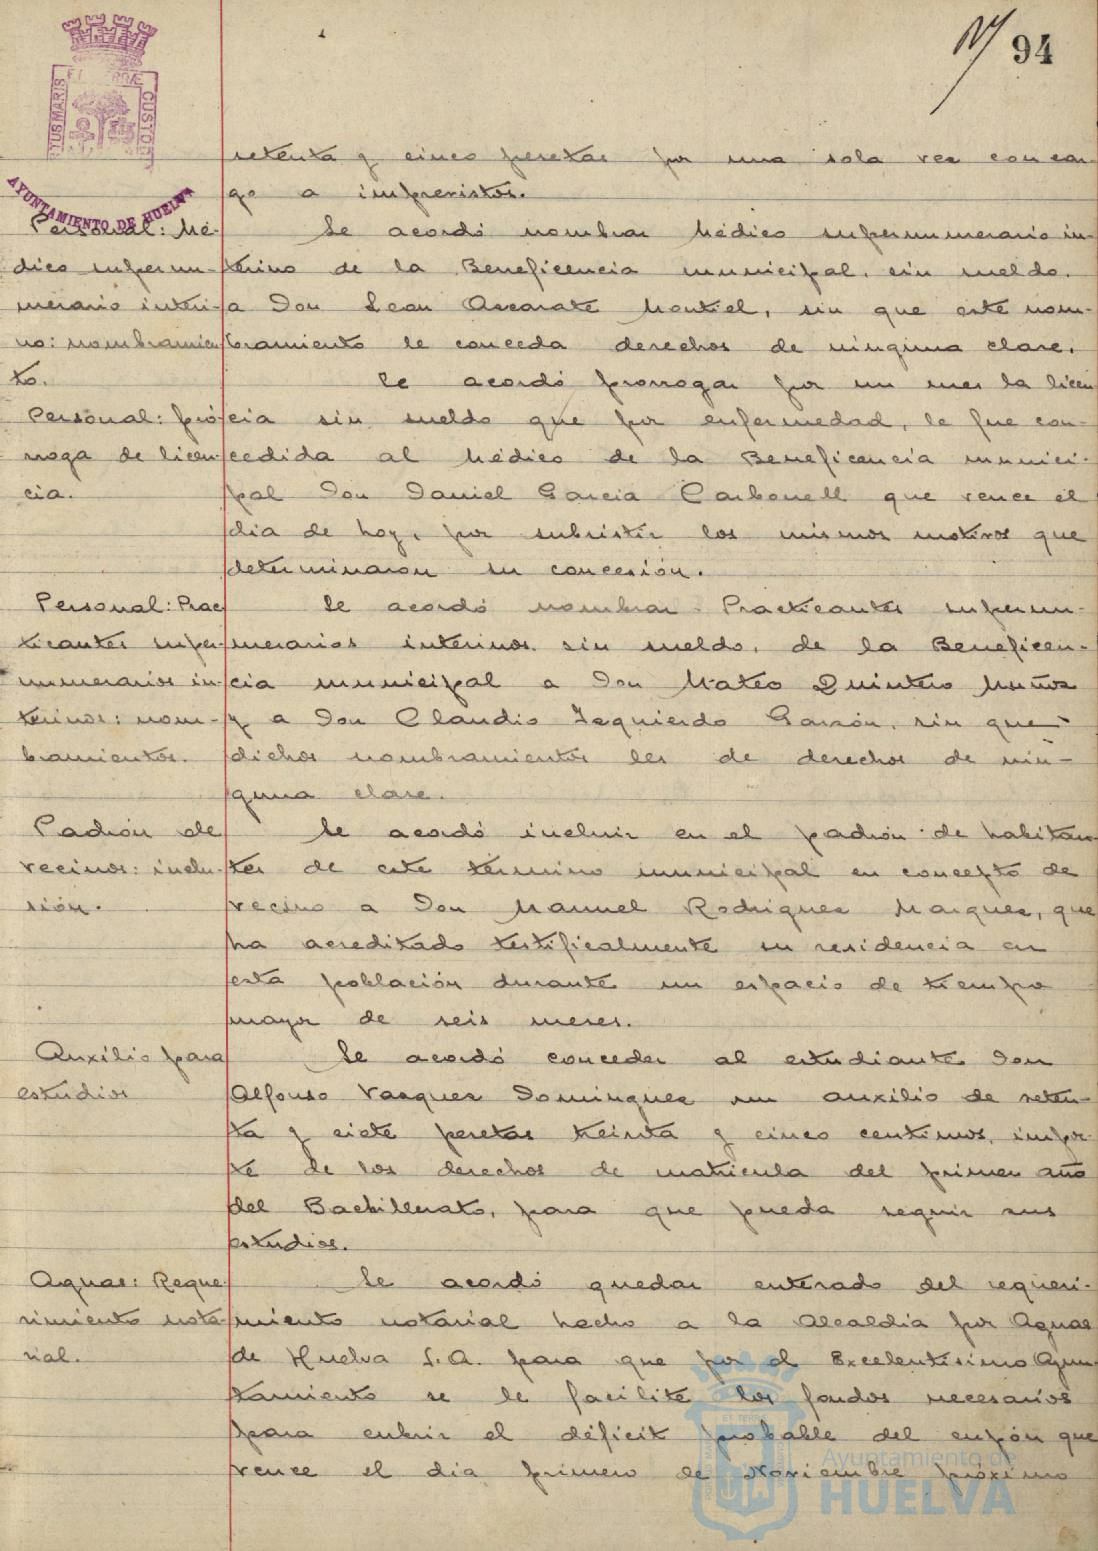 94
PORTUS MARIS ET TERRÆ CUSTODIA
AYUNTAMIENTO DE HUELVA
setenta y cinco pesetas por una sola vez con car-
go a imprevistos.
Personal: Mé-
dico supernu-
merario interi-
no: nombramien
to.
Se acordó nombrar Médico supernumerario in-
terino de la Beneficencia municipal, sin sueldo,
a Don Leon Azcarate Montiel, sin que este nom-
bramiento le conceda derechos de ninguna clase.
Personal: pró-
rroga de licen-
cia.
Se acordó prorrogar por un mes la licen
cia sin sueldo que por enfermedad, le fue con-
cedida al Médico de la Beneficencia munici-
pal Don Daniel Garcia Carbonell que vence el
dia de hoy, por subsistir los mismos motivos que
determinaron su concesión.
Personal: Prac
ticantes super-
numerarios in-
terinos: nom-
bramientos.
Se acordó nombrar Practicantes supernu-
merarios interinos, sin sueldo, de la Beneficen-
cia municipal a Don Mateo Quintero Muñoz
y a Don Claudio Izquierdo Garzón, sin que
dichos nombramientos les de derechos de nin-
guna clase.
Padrón de
vecinos: inclu-
sión.
Se acordó incluir en el padrón de habitan
tes de este término municipal en concepto de
vecino a Don Manuel Rodriguez Marquez, que
ha acreditado testificalmente su residencia en
esta población durante un espacio de tiempo
mayor de seis meses.
Auxilio para
estudios
Se acordó conceder al estudiante Don
Alfonso Vazquez Dominguez un auxilio de seten-
ta y siete pesetas treinta y cinco centimos, impor-
te de los derechos de matricula del primer año
del Bachillerato, para que pueda seguir sus
estudios.
Aguas: Reque-
rimiento nota-
rial.
Se acordó quedar enterado del requeri-
miento notarial hecho a la Alcaldia por Aguas
de Huelva S.A. para que por el Excelentisimo Ayun-
tamiento se le facilite los fondos necesarios
para cubrir el déficit probable del cupón que
vence el dia primero de Noviembre próximo
Ayuntamiento de
HUELVA